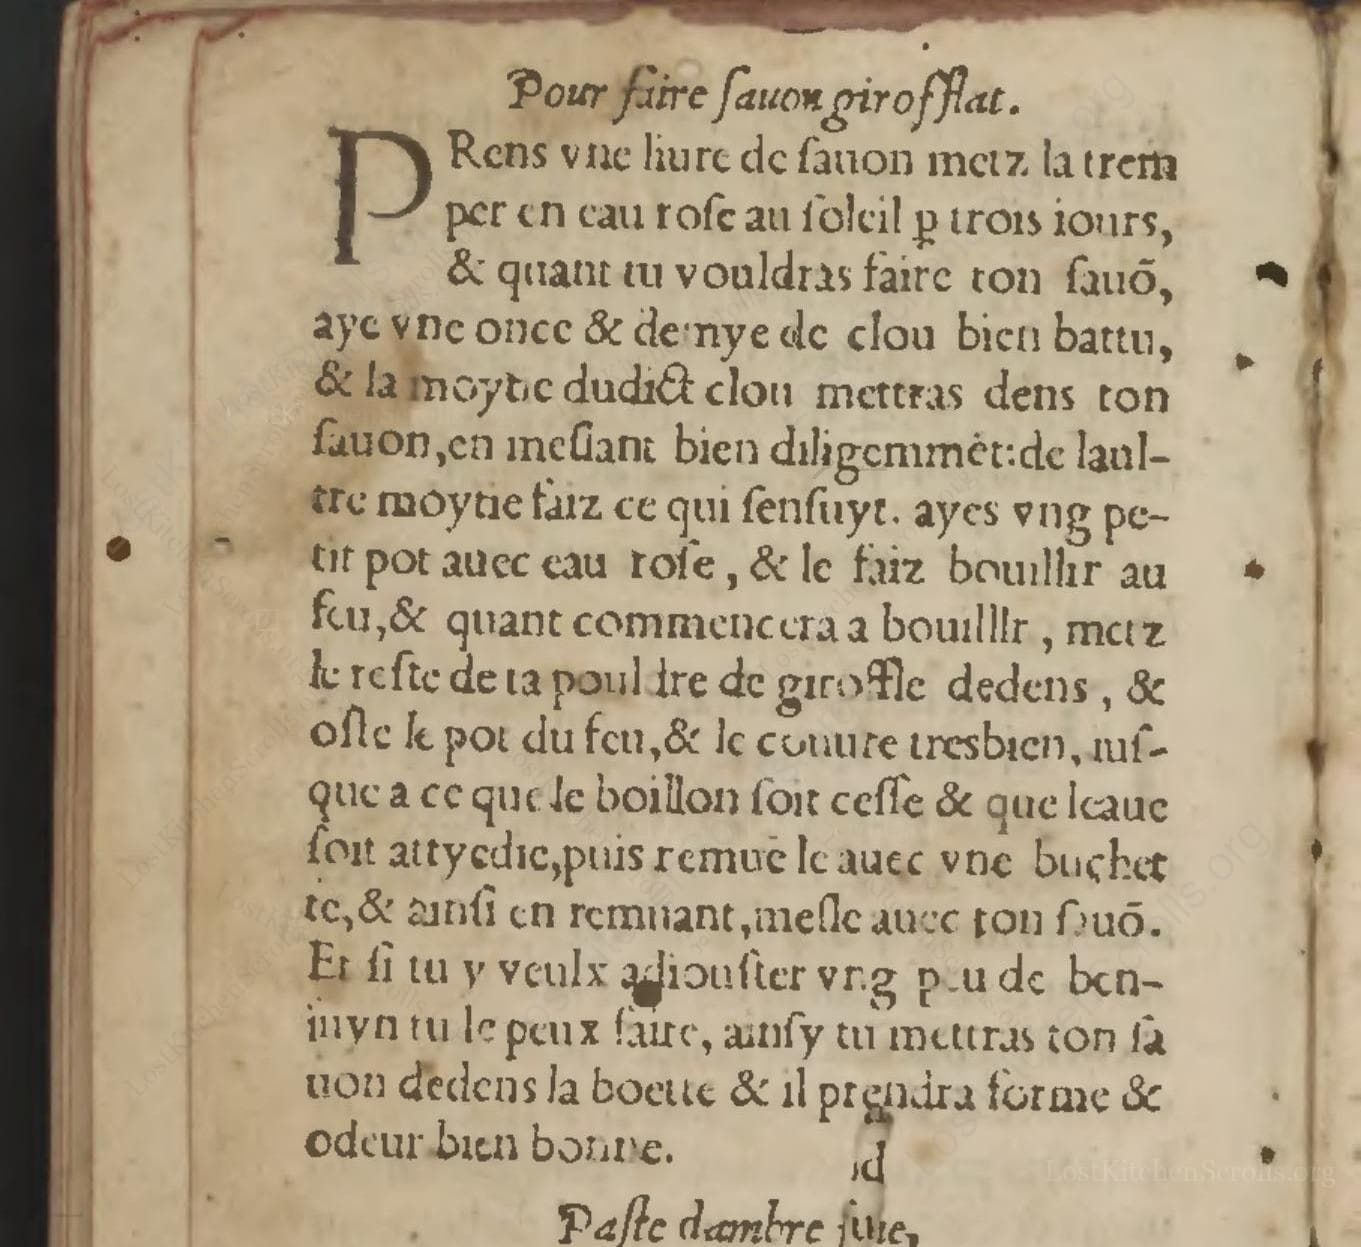 Pour faire sauon girofflat.
PRens vne liure de sauon metz la trem
per en eau rose au soleil ꝑ trois iours,
& quant tu vouldras faire ton sauō,
aye vne once & demye de clou bien battu,
& la moytie dudict clou mettras dens ton
sauon,en meslant bien diligemmēt:de laul-
tre moytie faiz ce qui sensuyt. ayes vng pe-
tit pot auec eau rose, & le faiz bouillir au
feu,& quant commencera a bouillir, metz
le reste de ta pouldre de giroffle dedens, &
oste le pot du feu,& le couure tresbien, iuf-
que a ce que le boillon soit cesse & que leaue
soit attyedie,puis remue le auec vne buchet
te,& ainsi en remuant,mesle auec ton sauō.
Et si tu y veulx adiouster vng peu de ben-
iuyn tu le peux faire, ainsy tu mettras ton sa
uon dedens la boette & il prendra forme &
odeur bien bonne.
Paste dambre
LostKitchenScrolls.org